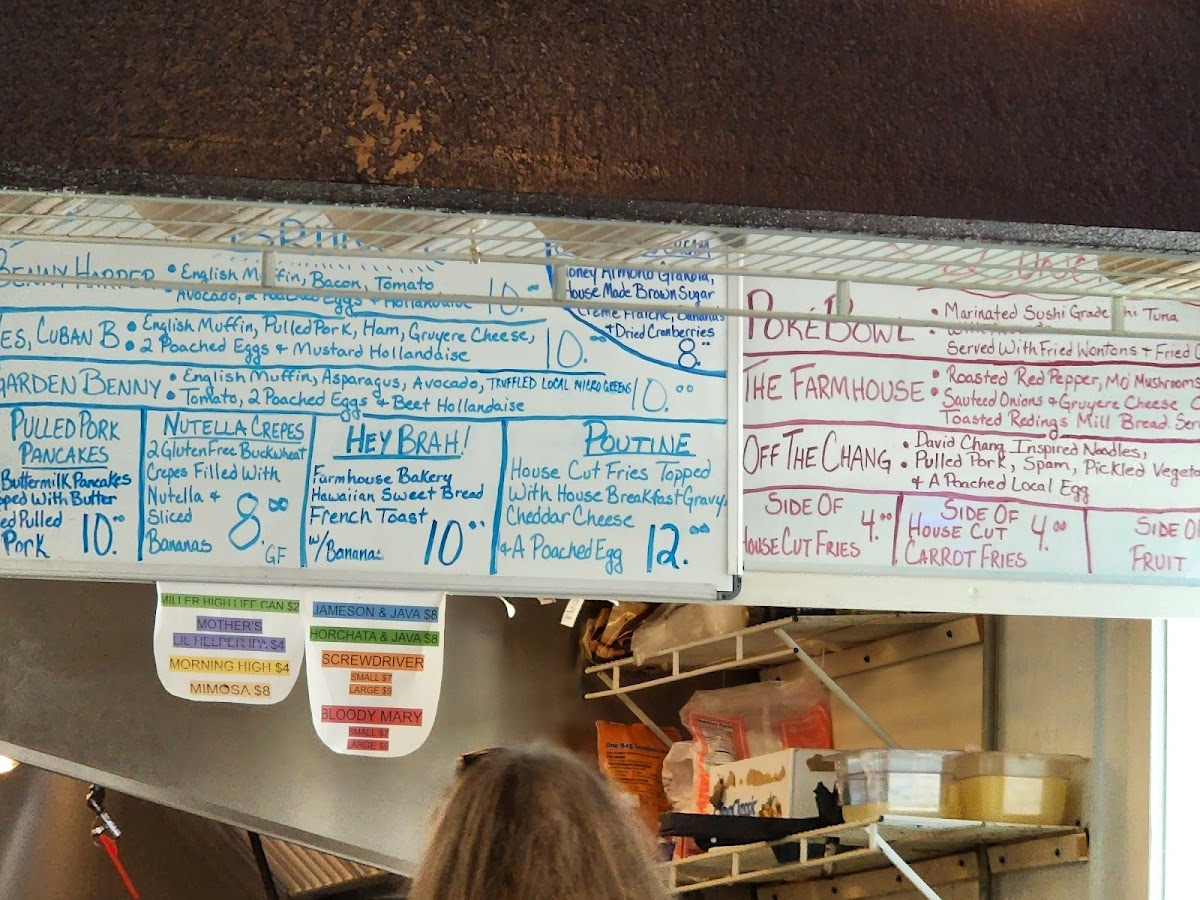 BENNY HARPER • English Muffin, Bacon, Tomato
Avocado, 2 Poached Eggs & Hollandaise 10.
ES, CUBAN B • English Muffin, Pulled Pork, Ham, Gruyere Cheese,
• 2 Poached Eggs & Mustard Hollandaise 10.00
GARDEN BENNY • English Muffin, Asparagus, Avocado, TRUFFLED LOCAL MICRO GREENS
• Tomato, 2 Poached Eggs & Beet Hollandaise 10.00
Honey Almond Granola,
House Made Brown Sugar
Creme Fraiche, Bananas
& Dried Cranberries
8.00
PULLED PORK
PANCAKES
Buttermilk Pancakes
pped With Butter
ed Pulled
Pork 10.00
NUTELLA CREPES
2 Gluten Free Buckwheat
Crepes Filled With
Nutella &
Sliced
Bananas 8.00
GF
HEY BRAH!
Farmhouse Bakery
Hawaiian Sweet Bread
French Toast
w/Bananas 10.00
POUTINE
House Cut Fries Topped
With House Breakfast Gravy,
Cheddar Cheese
& A Poached Egg 12.00
POKÉ BOWL • Marinated Sushi Grade Ahi Tuna
Served With Fried Wontons & Fried
THE FARMHOUSE • Roasted Red Pepper, Mo' Mushrooms
• Sauteed Onions & Gruyere Cheese
Toasted Redings Mill Bread. Ser
OFF THE CHANG • David Chang Inspired Noodles,
• Pulled Pork, Spam, Pickled Veget
• & A Poached Local Egg
SIDE OF
HOUSE CUT FRIES 4.00
SIDE OF
HOUSE CUT
CARROT FRIES 4.00
SIDE O
FRUIT
MILLER HIGH LIFE CAN $2
MOTHER'S
LIL HELPER IPA $4
MORNING HIGH $4
MIMOSA $8
JAMESON & JAVA $8
HORCHATA & JAVA $8
SCREWDRIVER
SMALL $7
LARGE $9
BLOODY MARY
SMALL $7
LARGE $9